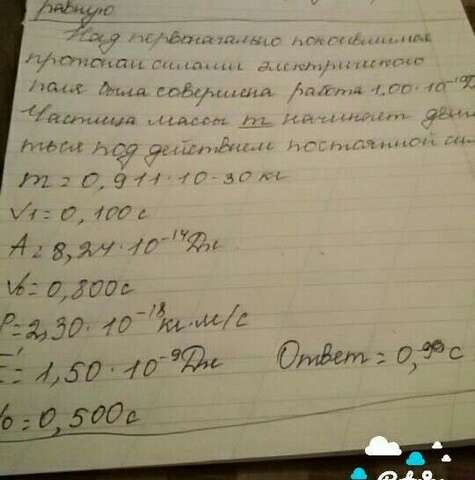 равную
Над первоначально покоившимся
протоном силами электрического
поля была совершена работа 1,00·10⁻¹⁰
Частица массы m начинает дви
ться под действием постоянной си
m = 0,911·10-30 кг
V1 = 0,100 c
A = 8,24·10⁻¹⁴ Дж
V0 = 0,800 c
P = 2,30·10⁻¹⁸ кг·м/с
E' = 1,50·10⁻⁹ Дж Ответ = 0,90 c
V0 = 0,500 c